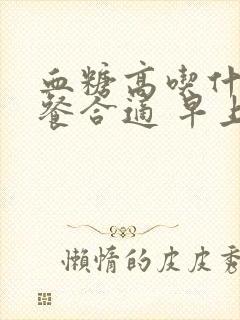 血糖高喫什
餐合適 早上
懶惰的皮皮秀